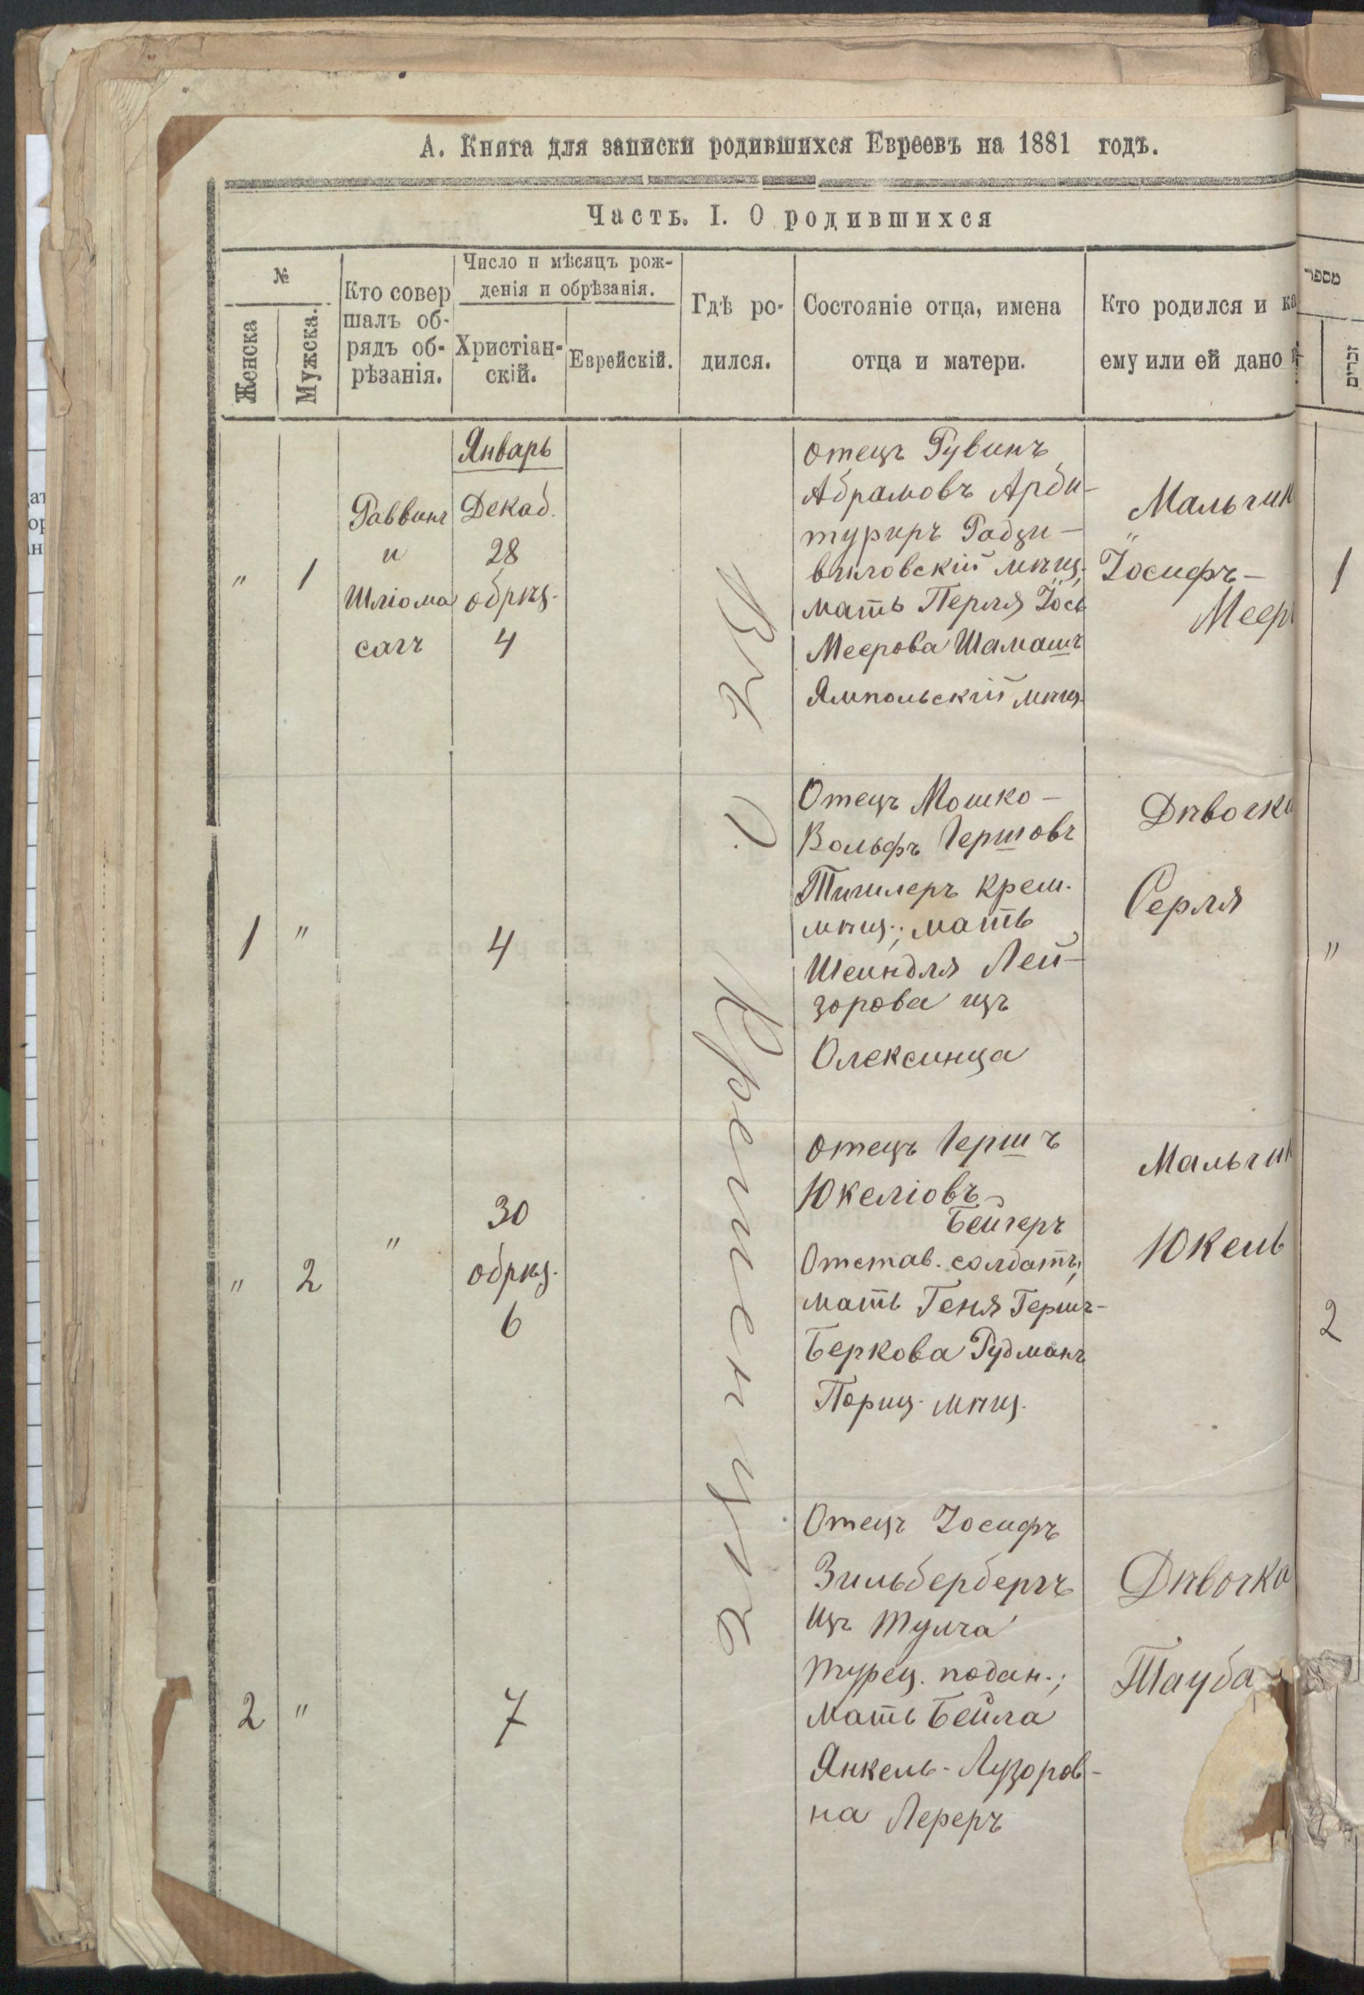 А. Книга для записки родившихся Евреевъ на 1881 годъ.
Часть. I. О родившихся
№
Женска
Мужска.
Кто совер
шалъ об-
рядъ об-
рѣзанія.
Число и мѣсяцъ рож-
денія и обрѣзанія.
Христіан-
скій.
Еврейскій.
Гдѣ ро-
дился.
Состояніе отца, имена
отца и матери.
Кто родился и ка
ему или ей дано
מספר
זכרים
"
1
Раввинъ
и
Шліома
сагъ
Январь
Декаб.
28
обрѣз.
4
Въ г. Кременцѣ
отецъ Рувинъ
Абрамовъ Арби-
туриръ Радзи-
виловскій мѣщ.
мать Перля Іось
Меерова Шамашъ
Ямпольскій мѣщ.
Мальчик
Іосифъ-
Меер
1
1
"
4
Отецъ Мошко-
Вольфъ Гершовъ
Тишлеръ Крем.
мѣщ.; мать
Шеиндля Леи-
зорова изъ
Олексинца
Дѣвочка
Серля
"
"
2
"
30
обрѣз.
6
отецъ Гершъ
Юкеліовъ
Бейгеръ
Отстав. солдатъ,
мать Геня Гершъ-
Беркова Рудманъ
Пориц. мѣщ.
Мальчик
Юкель
2
2
"
7
Отецъ Іосифъ
Зильбербергъ
изъ Тулча
турец. подан.;
мать Бейла
Янкель-Лузоров-
на Лереръ
Дѣвочка
Тауба